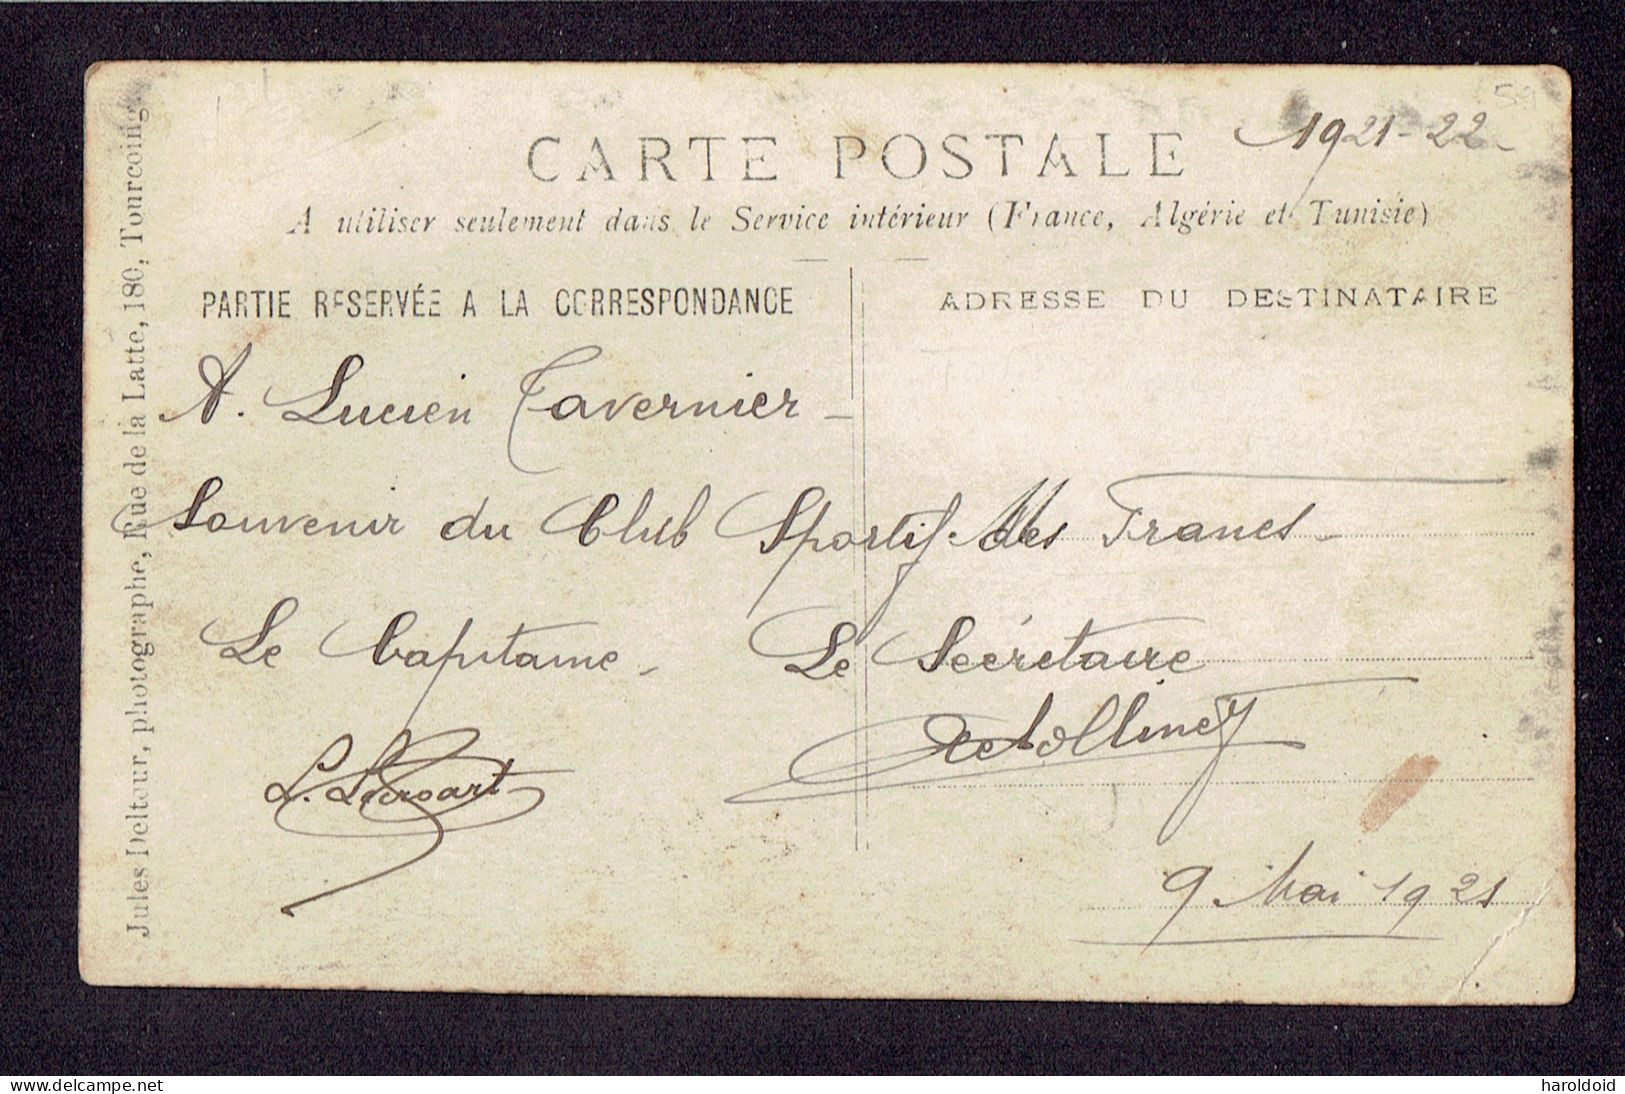 59
1921-22
CARTE POSTALE
A utiliser seulement dans le Service intérieur (France, Algérie et Tunisie)
PARTIE RESERVÉE A LA CORRESPONDANCE
ADRESSE DU DESTINATAIRE
A. Lucien Tavernier
Souvenir du Club Sportif des Francs
Le Capitaine
Le Secrétaire
L. Lecroart
9 Mai 1921
Jules Delteur, photographe, Rue de la Latte, 180, Tourcoing
www.delcampe.net
haroldoid